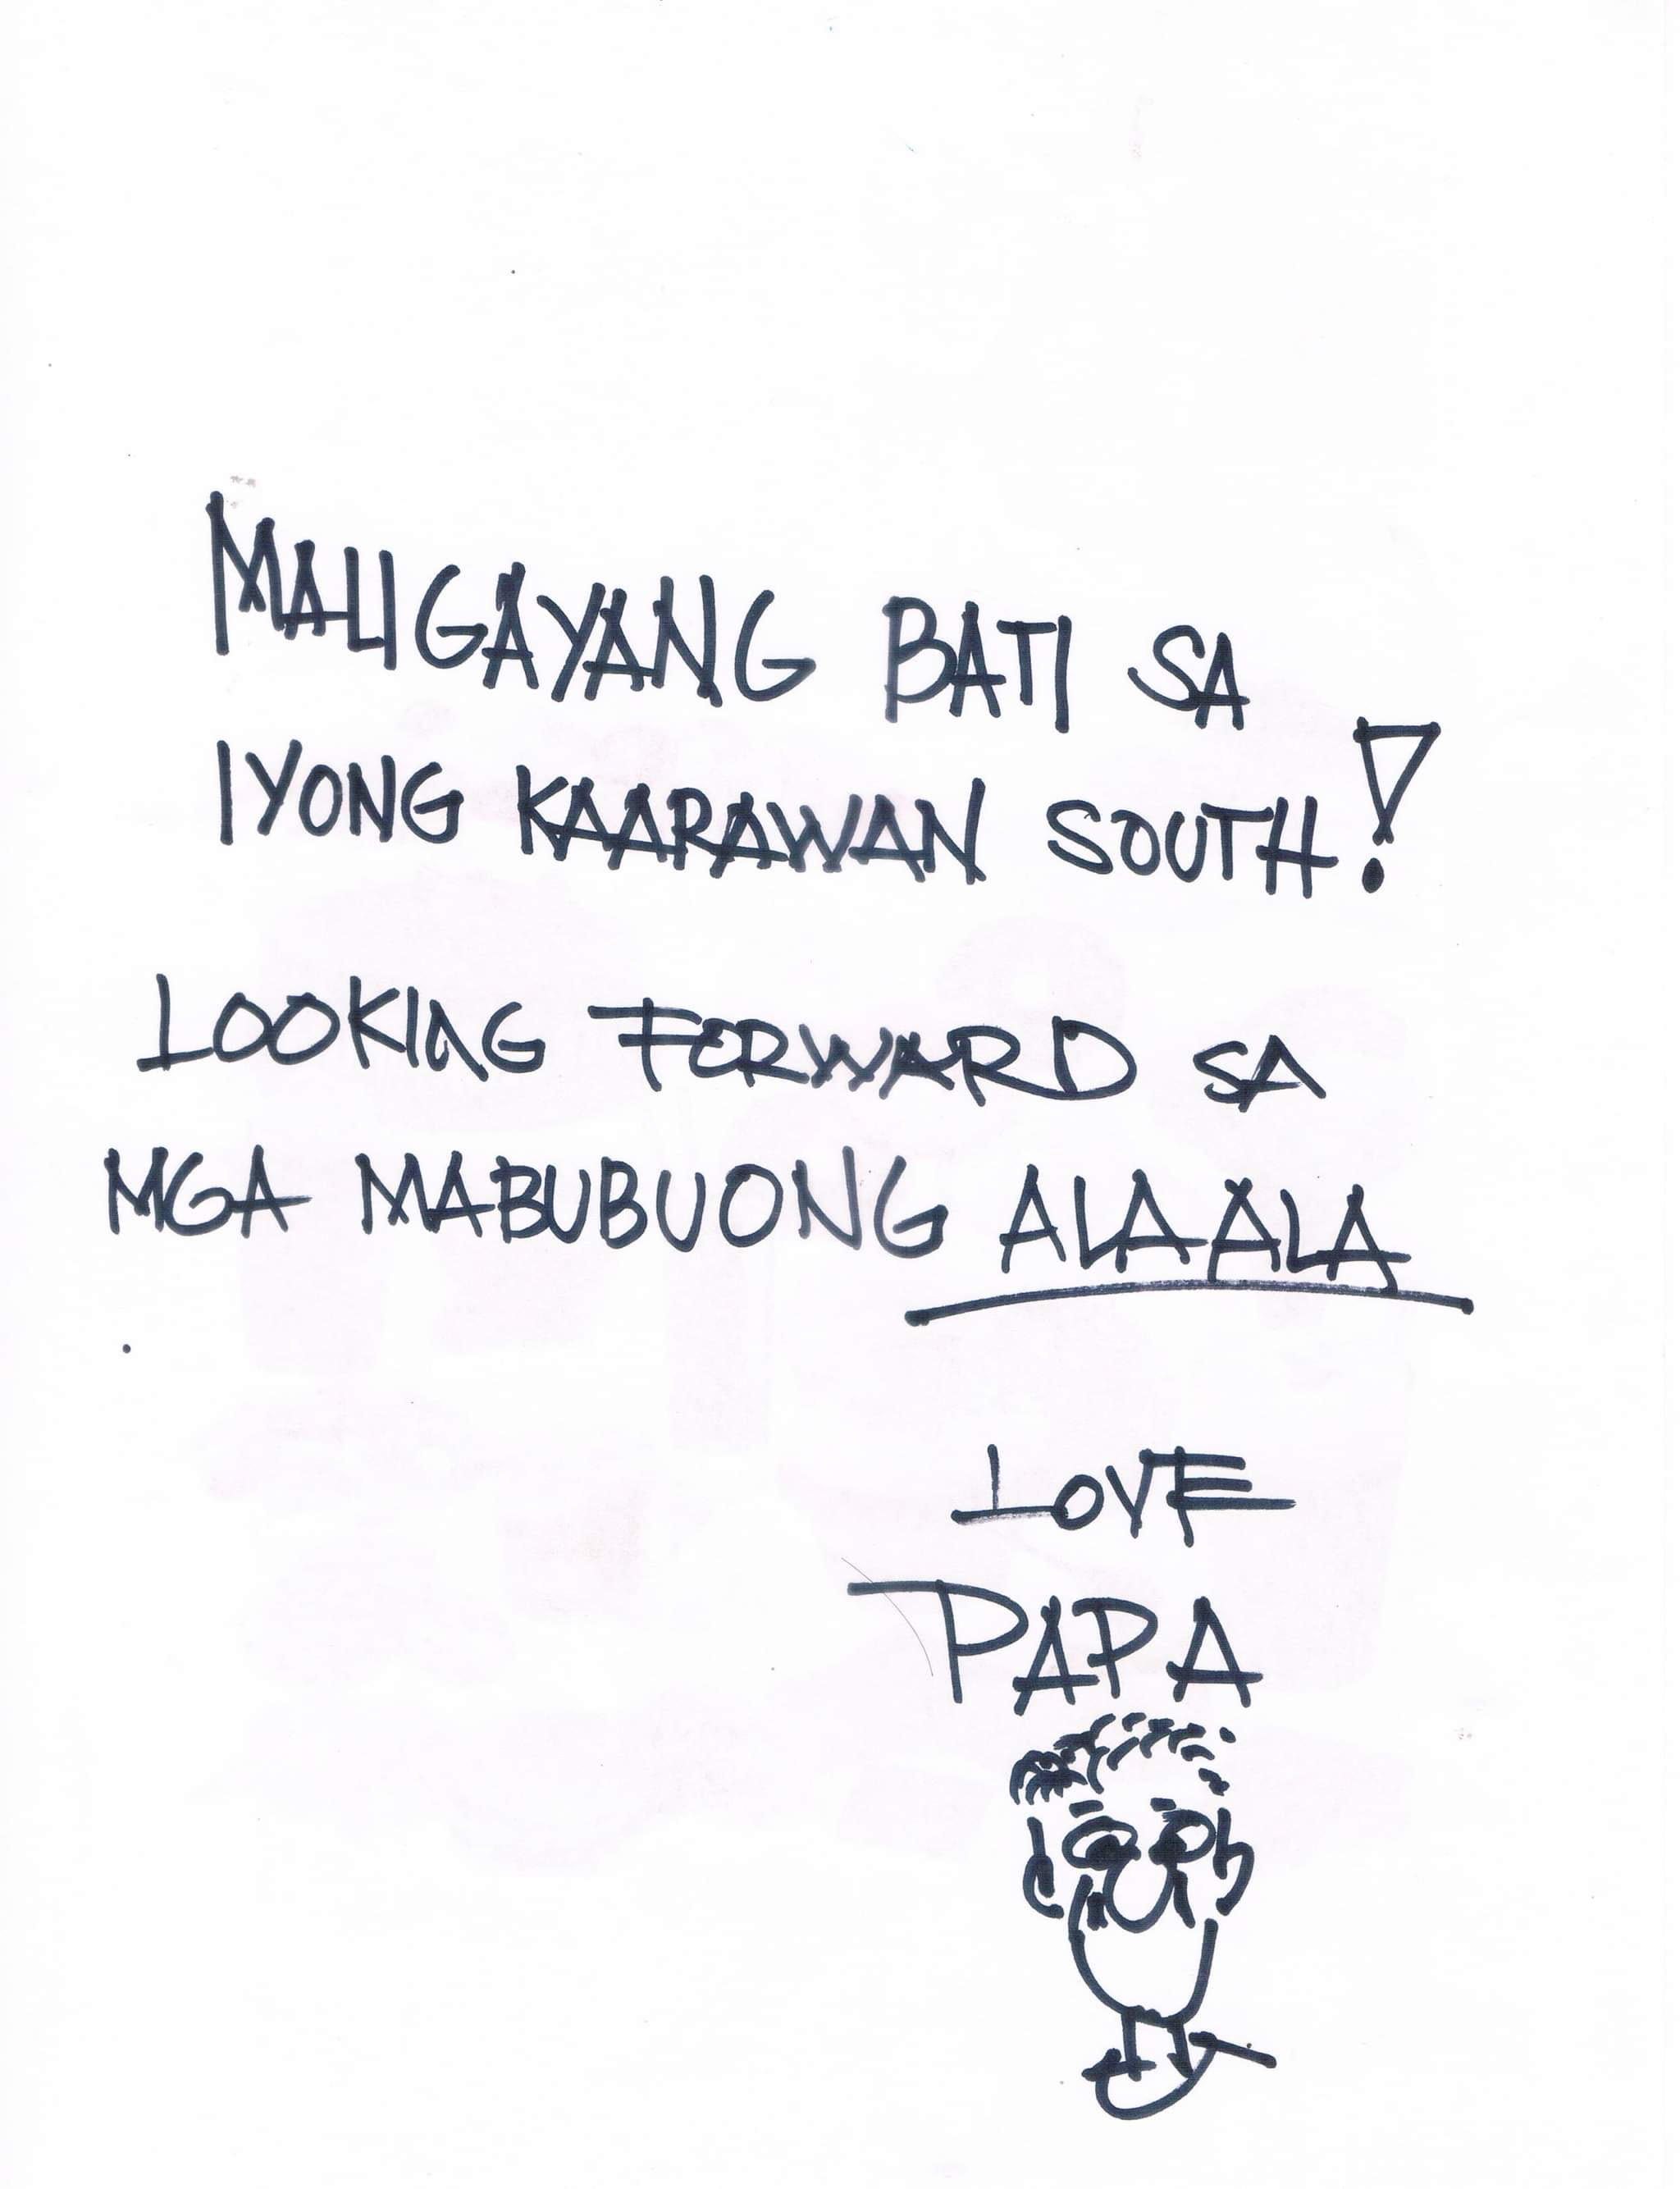 MALIGAYANG BATI SA
IYONG KAARAWAN SOUTH!
LOOKING FORWARD SA
MGA MABUBUONG ALAALA
LOVE
PAPA